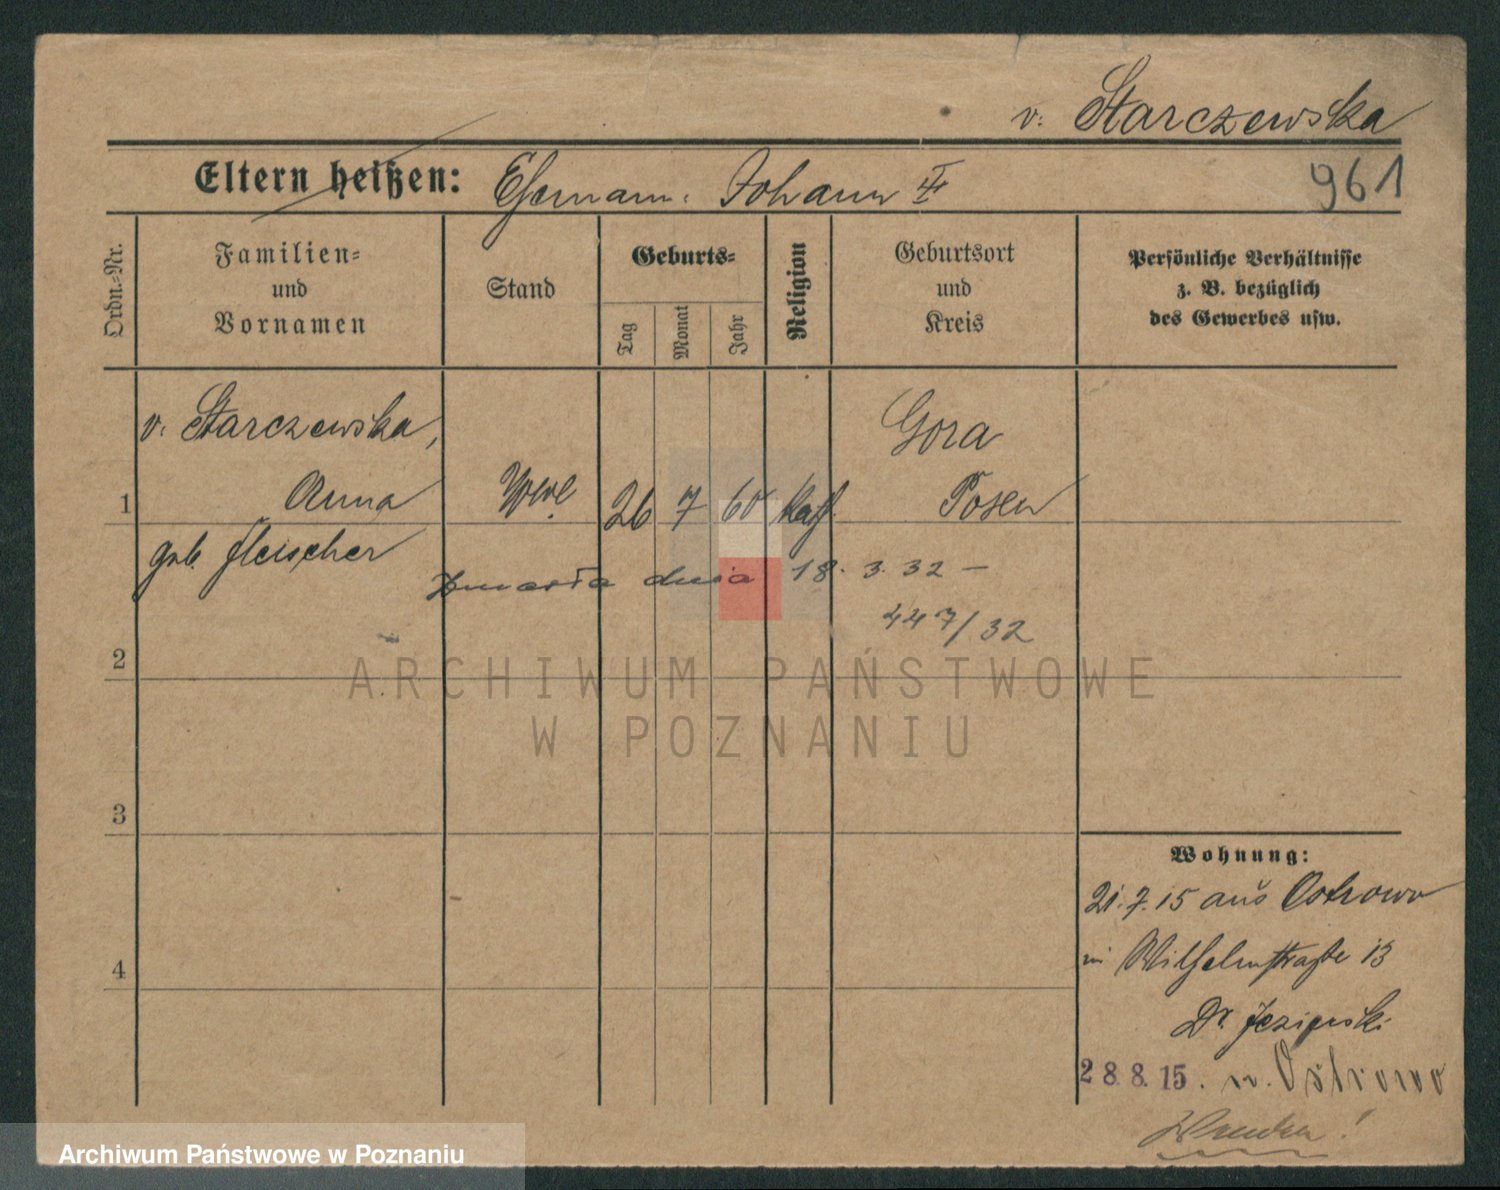 v. Starczewska
961
Eltern heißen: Ehemann: Johann †
Ordn.-Nr.
Familien-
und
Vornamen
Stand
Geburts-
Tag
Monat
Jahr
Religion
Geburtsort
und
Kreis
Persönliche Verhältnisse
z. B. bezüglich
des Gewerbes usw.
v. Starczewska,
Gora
1 Anna Wwe 26 7 60 kath. Posen
geb. Fleischer
Zmarła dnia 18. 3. 32 -
447/32
2
3
4
Wohnung:
21. 7. 15 aus Ostrowo
Wilhelmstraße 13
Dr. Jezierski
28. 8. 15. n. Ostrowo
ARCHIWUM PAŃSTWOWE
W POZNANIU
Archiwum Państwowe w Poznaniu